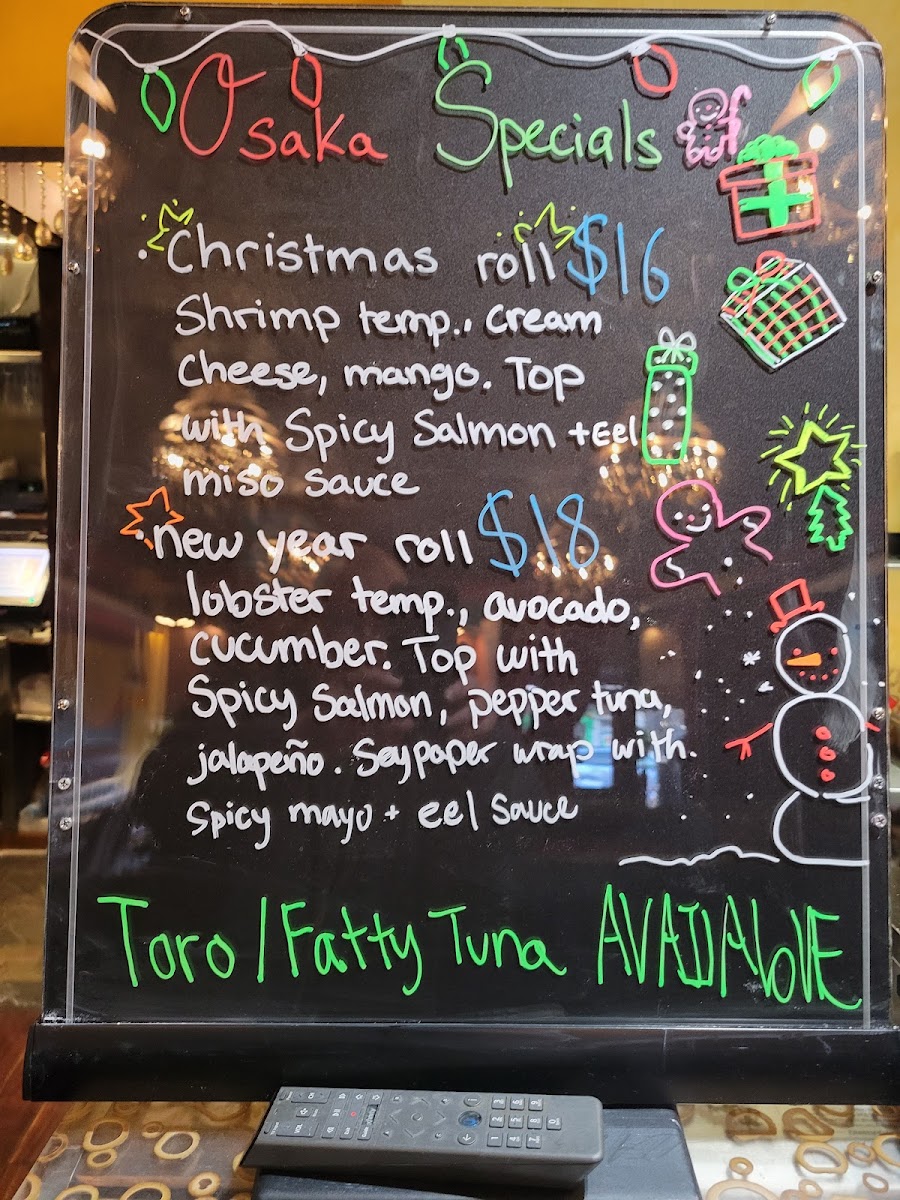 Osaka Specials
Christmas roll $16
Shrimp temp., cream
Cheese, mango. Top
with Spicy Salmon + Eel
miso sauce
new year roll $18
lobster temp., avocado,
cucumber. Top with
Spicy Salmon, pepper tuna,
jalapeño. Soypaper wrap with
Spicy mayo + eel sauce
Toro / Fatty Tuna